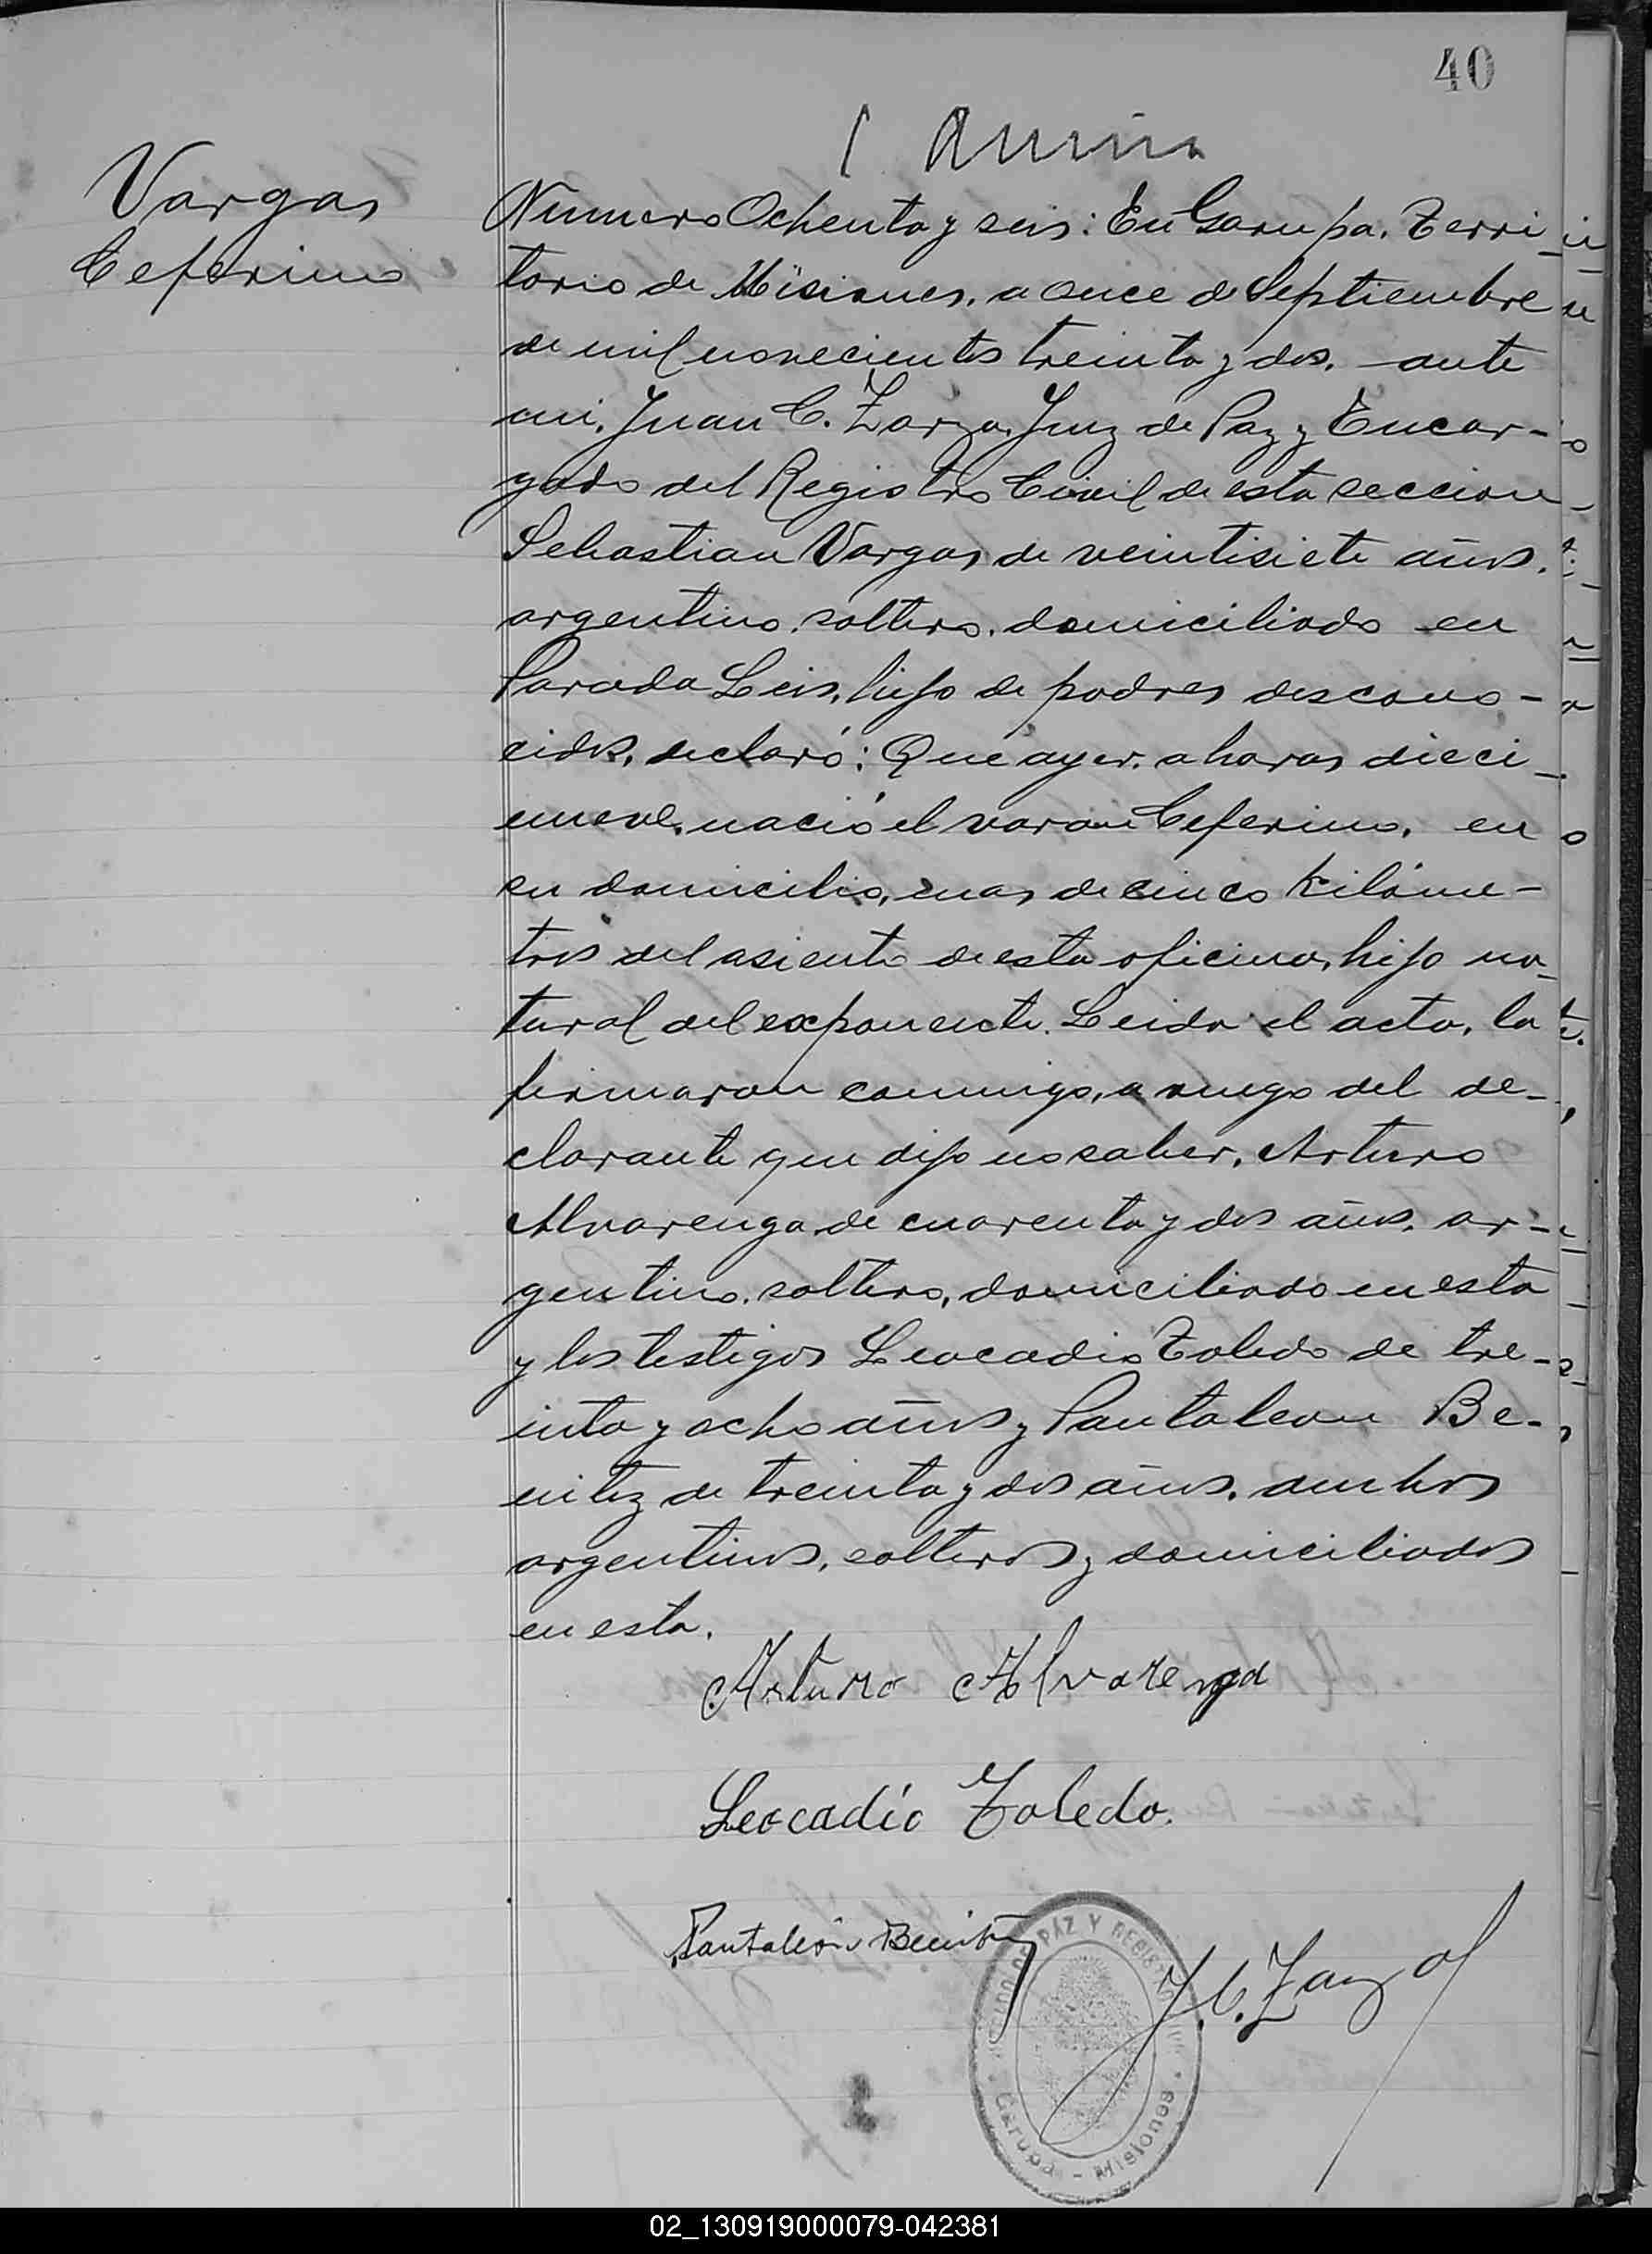 40
Vargas
Ceferino
Número Ochenta y seis: En Garupa, Terri-
torio de Misiones, a once de Septiembre
de mil novecientos treinta y dos, ante
mi, Juan C. Zarza, Juez de Paz y Encar-
gado del Registro Civil de esta seccion
Sebastian Vargas, de veintisiete años,
argentino, soltero, domiciliado en
Parada Leis, hijo de padres descono-
cidos, declaró: Que ayer, a horas dieci-
nueve, nació el varón Ceferino, en
su domicilio, mas de cinco kilóme-
tros del asiento de esta oficina, hijo na-
tural del exponente. Leida el acta, la
firmaron conmigo, a ruego del de-
clarante que dijo no saber, Arturo
Alvarenga de cuarenta y dos años, ar-
gentino, soltero, domiciliado en esta
y los testigos Leocadio Toledo de tre-
inta y ocho años y Pantaleon Be-
nitez de treinta y dos años, ambos
argentinos, solteros y domiciliados
en esta.
Arturo Alvarenga
Leocadio Toledo.
Pantaleón Benitez
J. C. Zarza
PAZ Y REGISTRO
Garupá - Misiones
02_130919000079-042381